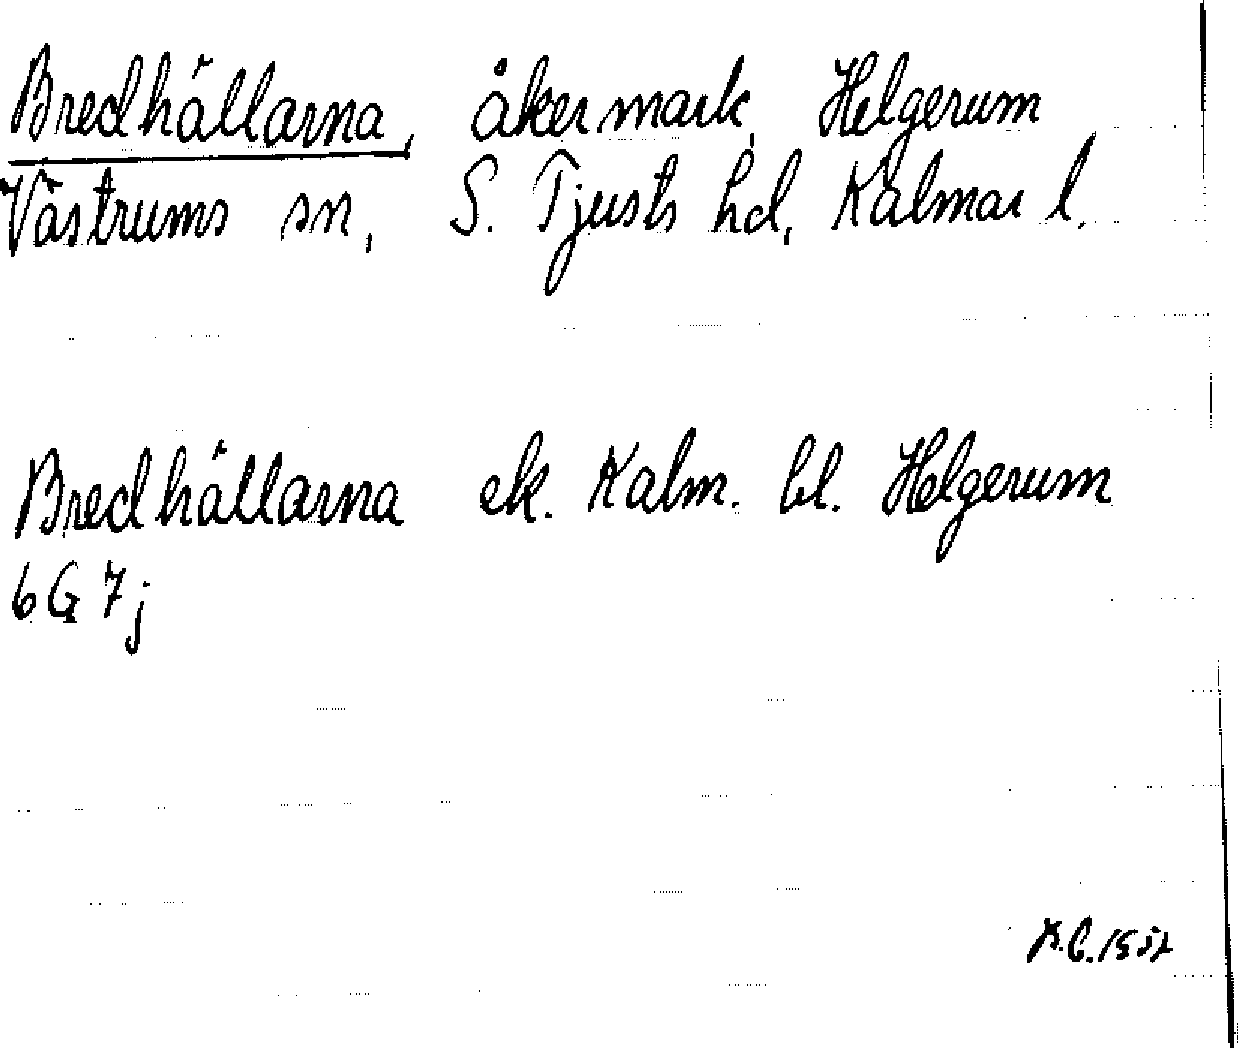 Bredhällarna, åkermark, Helgerum
Västrums sn, S. Tjusts hd, Kalmar l.
Bredhällarna ek. Kalm. bl. Helgerum
6G7j